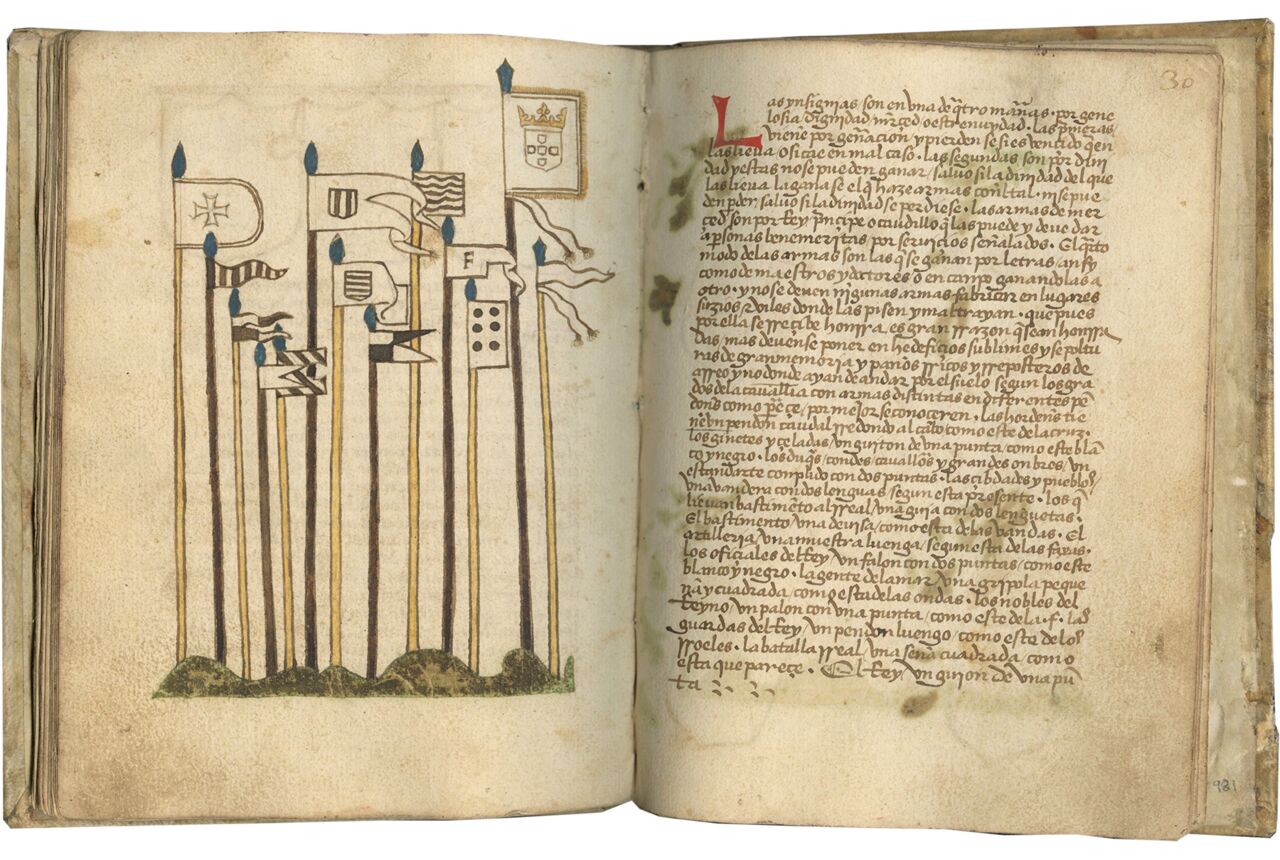 F
30
Las ynsignias son en vna de q̃tro mañas · por gene
losia dignidad mr̃ced o estrenuydad · las pm̃eras
vienẽ por geñacioñ y pierden se si es vençido q̃en
las lieva o si cae en mal caso · las segundas son por dini
dad y estas no se pueden ganar / saluo si la dinidad del que
las lieva la gana se el q̃ haze armas coñl tal · ni se pue
den pder̃ saluo si la dinidad se perdiese · las armas de mer
ced son por Rey pñcipe o caudillo q̃ las puede y deve dar
a p̃sonas benemeritas por serviçios señalados · El q̃rto
modo de las armas son las q̃ se ganan por letras / ansy
como de maestros y dotores o en canpo ganandolas a
otro · y no se deven nĩgunas armas fabricar en lugares
suzios & viles donde las pisen y maltrayan · que pues
por ella se rreçibe honrra, es gran rrazon q̃ sean honrra
das, mas devense poner en hedefiçios sublimes y sepoltu
ras de gran memoria y paños rricos y rreposteros de
arreo y no donde ayan de andar por el suelo segun los gra
dos de la cauall̃ia con armas distintas en diferentes pẽ
dons como p̃eçe / por mejor se conoçeren · las hordens tie
nẽ vn pendon caudal rredondo al cabo como este de la cruz ·
los ginetes y çeladas / vn guiton de vna punta / como este blã
co y negro · los duq̃s / condes / cavallos̃ y grandes onbres / vn
estandarte conplido con dos puntas · las cibdades y pueblos
vna vandera con dos lenguas segun esta presente · los q̃
lievan bastimẽto al rreal / vna guia con dos lenguetas ·
El bastimento / vna devisa / como esta de las vandas · El
artilleria / vna muestra luenga / segun esta de las faxas ·
los oficiales del Rey / vn falon con dos puntas / como este
blanco y negro · la gente de la mar / vna gripola peque
ña y cuadrada / como esta de las ondas · los nobles del
Reyno / vn palon con vna punta / como este de la · f · las
guardas del Rey / vn pendon luengo / como este de los
rroeles · la batalla rreal / vna seña cuadrada como
esta que pareçe · El Rey / vn guion de vna pũ
ta
981